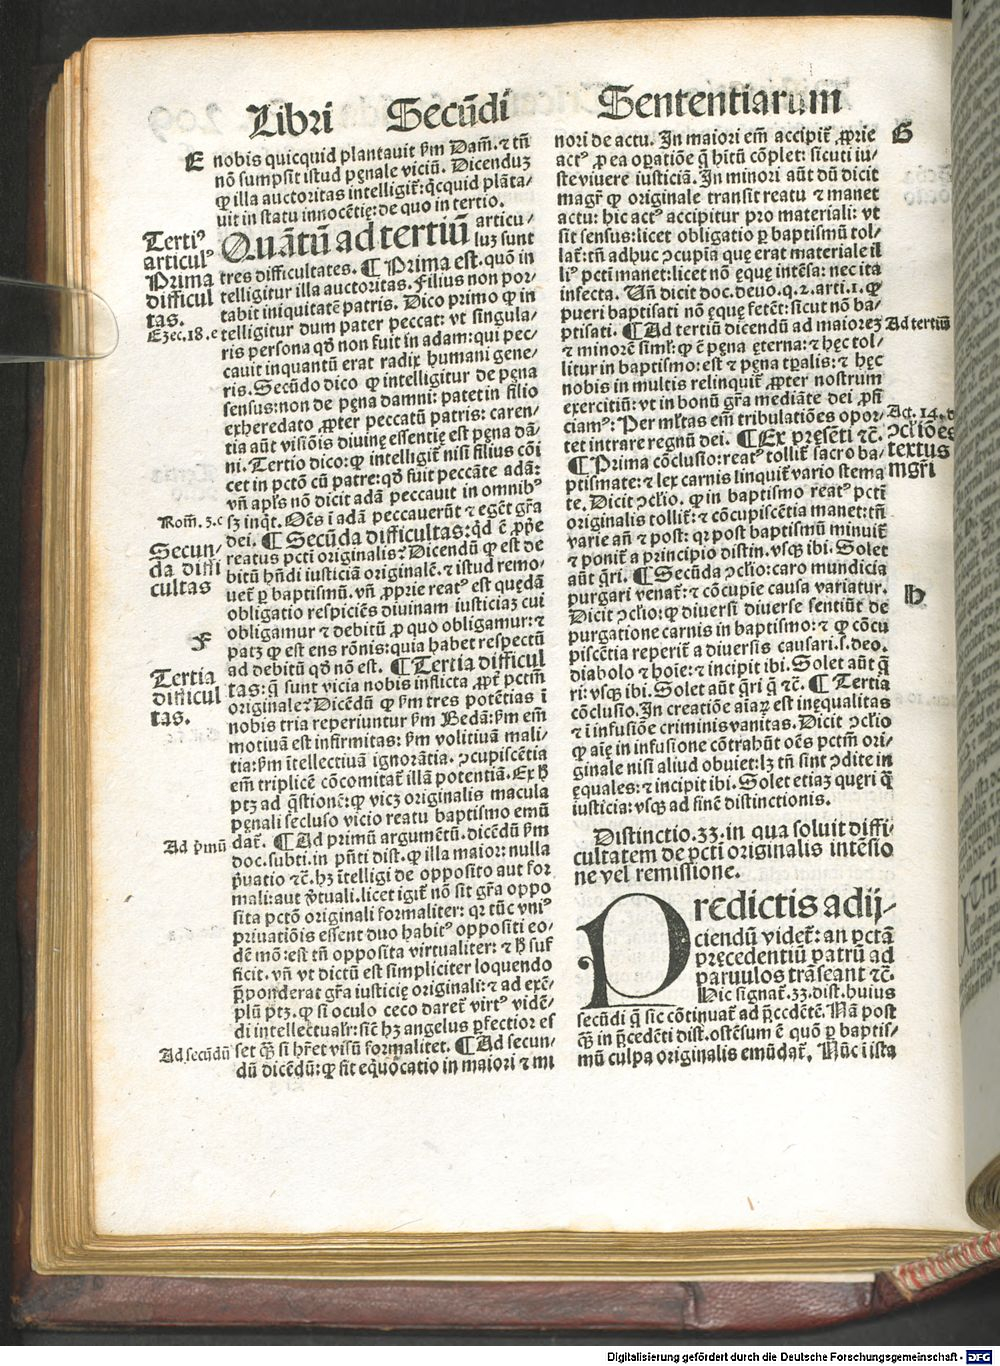 Libri Secūdi Sententiarum
E
nobis quicquid plantauit ẜm Dam̄. ⁊ tn̄
nō sumpsit istud pęnale viciū. Dicenduꝫ
ꝙ illa auctoritas intelligit̄: q̇cquid plāta-
uit in statu innocētię: de quo in tertio.
Tertiꝰ
articulꝰ
Prima
difficul
tas.
Ezec. 18. e
Quātū ad tertiū articu-
luꝫ sunt
tres difficultates. ¶ Prima est. quō in
telligitur illa auctoritas. Filius non por-
tabit iniquitatē patris. Dico primo ꝙ in
telligitur dum pater peccat: vt singula-
ris persona qđ non fuit in adam: qui pec-
cauit inquantū erat radix humani gene-
ris. Secūdo dico ꝙ intelligitur de pęna
sensus: non de pęna damni: patet in filio
exheredato ꝓpter peccatū patris: caren-
tia aūt visiōis diuinę essentię est pęna dā-
ni. Tertio dico: ꝙ intelligit̄ nisi filius cōi
cet in pctō cū patre: qđ fuit peccāte adā:
vn̄ apl̄s nō dicit adā peccauit in omnibꝰ
Rom̄. 3. c
sꝫ inqt. Oēs ī adā peccauerūt ⁊ egēt gr̄a
dei. ¶ Secūda difficultas: qđ ē ꝓp̄e
Secun-
da diffi
cultas
reatus pcti originalis? Dicendū ꝙ est de
bitū hn̄di iusticiā originalē. ⁊ istud remo-
uet̄ ꝑ baptismū. vn̄ ꝓprie reatꝰ est quędā
obligatio respiciēs diuinam iusticiaꝫ cui
obligamur ⁊ debitū ꝓ quo obligamur: ⁊
F
patꝫ ꝙ est ens rōnis: quia habet respectū
ad debitū qđ nō est. ¶ Tertia difficul
Tertia
difficul
tas.
tas: q̄ sunt vicia nobis inflicta ꝓpt̄ pctm̄
originale? Dicēdū ꝙ ẜm tres potētias ī
nobis tria reperiuntur ẜm Bedā: ẜm em̄
motiuā est infirmitas: ẜm volitiuā mali-
tia: ẜm ītellectiuā ignorātia. ↄcupiscētia
em̄ triplicē cōcomitat̄ illā potentiā. Ex ꝧ
ptꝫ ad q̄stionē: ꝙ vicꝫ originalis macula
pęnali secluso vicio reatu baptismo emū
Ad p̄mū
dat̄. ¶ Ad primū argumētū. dicēdū ẜm
doc. subti. in pn̄ti dist. ꝙ illa maior: nulla
p̄uatio ⁊c̄. hꝫ ītelligi de opposito aut for
mali: aut ꝟtuali. licet igit̄ nō sit gr̄a oppo
sita pctō originali formaliter: qꝛ tūc vniꝰ
priuatiōis essent duo habitꝰ oppositi eo-
dē mō: est tn̄ opposita virtualiter: ⁊ ꝧ suf
ficit. vn̄ vt dictū est simpliciter loquendo
p̄ponderat gr̄a iusticię originali: ⁊ ad exē-
plū ptꝫ. ꝙ si oculo ceco daret̄ virtꝰ vidē-
di intellectualr̄: sic̄ hꝫ angelus ꝑfectior es
Ad secūdū
set q̄ꝫ si hr̄et visū formalitet. ¶ Ad secun-
dū dicēdū: ꝙ sit equocatio in maiori ⁊ mi
nori de actu. In maiori em̄ accipit̄ ꝓprie
G
actꝰ ꝓ ea oꝑatiōe q̄ hitū cōplet: sicuti iu-
ste viuere iusticiā. In minori aūt dū dicit
magr̄ ꝙ originale transit reatu ⁊ manet
actu: hic actꝰ accipitur pro materiali: vt
sit sensus: licet obligatio ꝑ baptismū tol-
lat̄: tn̄ adhuc ↄcupia̅ quę erat materiale il
liꝰ pcti manet: licet nō ęque intēsa: nec ita
infecta. Vn̄ dicit doc. deuo. q. 2. arti. 1. ꝙ
pueri baptisati nō ęque fetēt: sicut nō ba-
ptisati. ¶ Ad tertiū dicendū ad maiorēꝫ
Ad tertiū
⁊ minorē siml̄: ꝙ ē pęna ęterna: ⁊ hęc tol-
litur in baptismo: est ⁊ pęna tꝑalis: ⁊ hęc
nobis in multis relinquit̄ ꝓpter nostrum
exercitiū: vt in bonū gr̄a mediāte dei ꝓfi
ciamꝰ: Per ml̄tas em̄ tribulatiōes opor-
Act. 14. d
tet intrare regnū dei. ¶ Ex pręsēti ⁊c̄.
ↄclīoēs
textus
mgr̄i
¶ Prima cōclusio: reatꝰ tollit̄ sacro ba-
ptismate: ⁊ lex carnis linquit̄ vario stema
te. Dicit ↄclo. ꝙ in baptismo reatꝰ pcti
originalis tollit̄: ⁊ cōcupiscētia manet: tn̄
varie an̄ ⁊ post: qꝛ post baptismū minuit̄
⁊ ponit̄ a principio distin. vsqꝫ ibi. Solet
aūt q̄ri. ¶ Secūda ↄclo: caro mundicia
H
purgari venat̄: ⁊ cōcupie causa variatur.
Dicit ↄclo: ꝙ diuersi diuerse sentiūt de
purgatione carnis in baptismo: ⁊ ꝙ cōcu
piscētia reperit̄ a diuersis causari. s. deo.
diabolo ⁊ hoīe: ⁊ incipit ibi. Solet aūt q̄
ri: vsqꝫ ibi. Solet aūt q̄ri q̄ ⁊c̄. ¶ Tertia
cōclusio. In creatiōe aīaꝝ est inęqualitas
⁊ ī infusiōe criminis vanitas. Dicit ↄclo
ꝙ aīę in infusione cōtrahūt oēs pctm̄ ori-
ginale nisi aliud obuiet: lꝫ tn̄ sint ↄdite in
ęquales: ⁊ incipit ibi. Solet etiaꝫ quęri q̄
iusticia: vsqꝫ ad finē distinctionis.
Distinctio. 33. in qua soluit diffi-
cultatem de pcti originalis intēsio
ne vel remissione.
Predictis adij-
ciendū videt̄: an pctā
pręcedentiū patrū ad
paruulos trāseant ⁊c̄.
Hic signat̄. 33. dist. huius
secūdi q̄ sic cōtinuat̄ ad p̄cedētē. Nā post
q̄ꝫ in p̄cedēti dist. ostēsum ē quō ꝑ baptis-
mū culpa originalis emūdat̄. Nūc ī ista
Digitalisierung gefördert durch die Deutsche Forschungsgemeinschaft - DFG